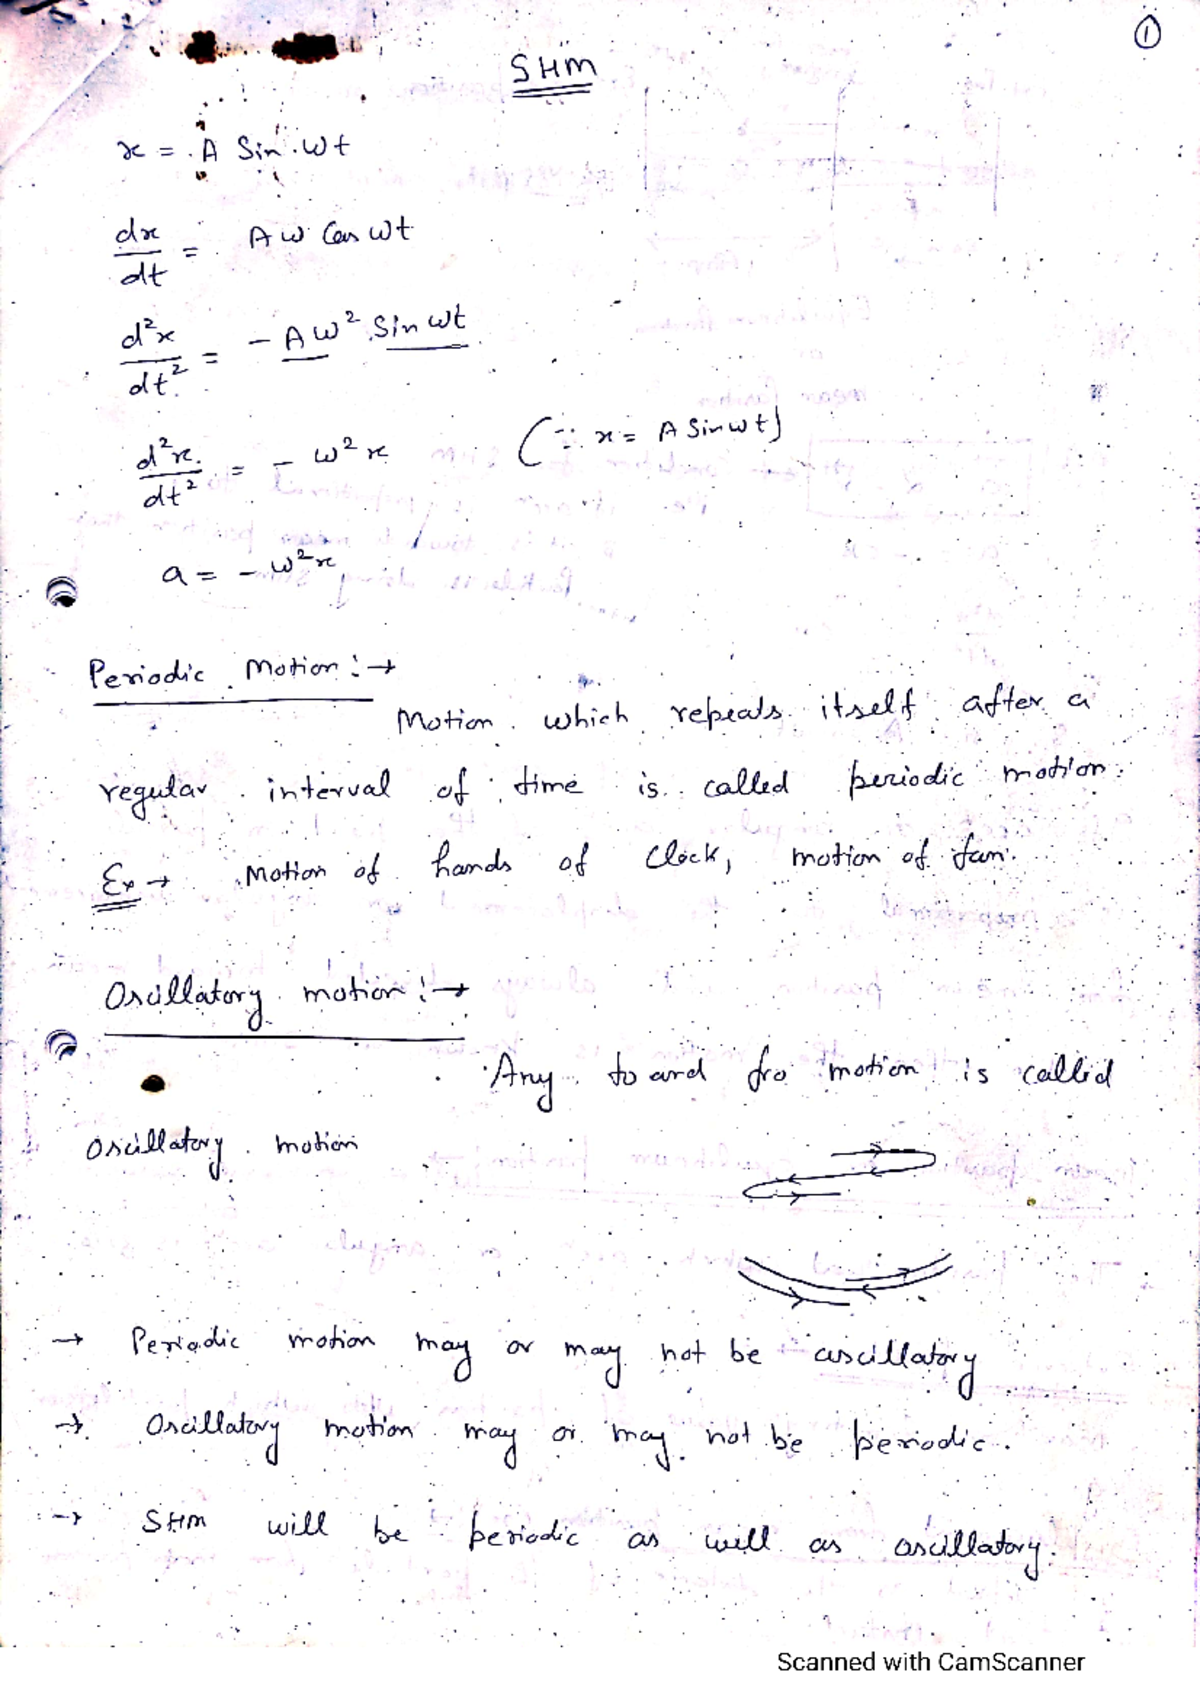 ①
SHM
x = A Sin ωt
dx/dt = Aω Cos ωt
d²x/dt² = - Aω² Sin ωt
d²x/dt² = - ω² x (∵ x = A Sin ωt)
a = - ω² x
Periodic Motion :→
Motion which repeats itself after a
regular interval of time is called periodic motion.
Ex → Motion of hands of Clock, motion of fan.
Oscillatory motion :→
Any to and fro motion is called
Oscillatory motion
→ Periodic motion may or may not be oscillatory
→ Oscillatory motion may or may not be periodic.
→ SHM will be periodic as will as oscillatory.
Scanned with CamScanner